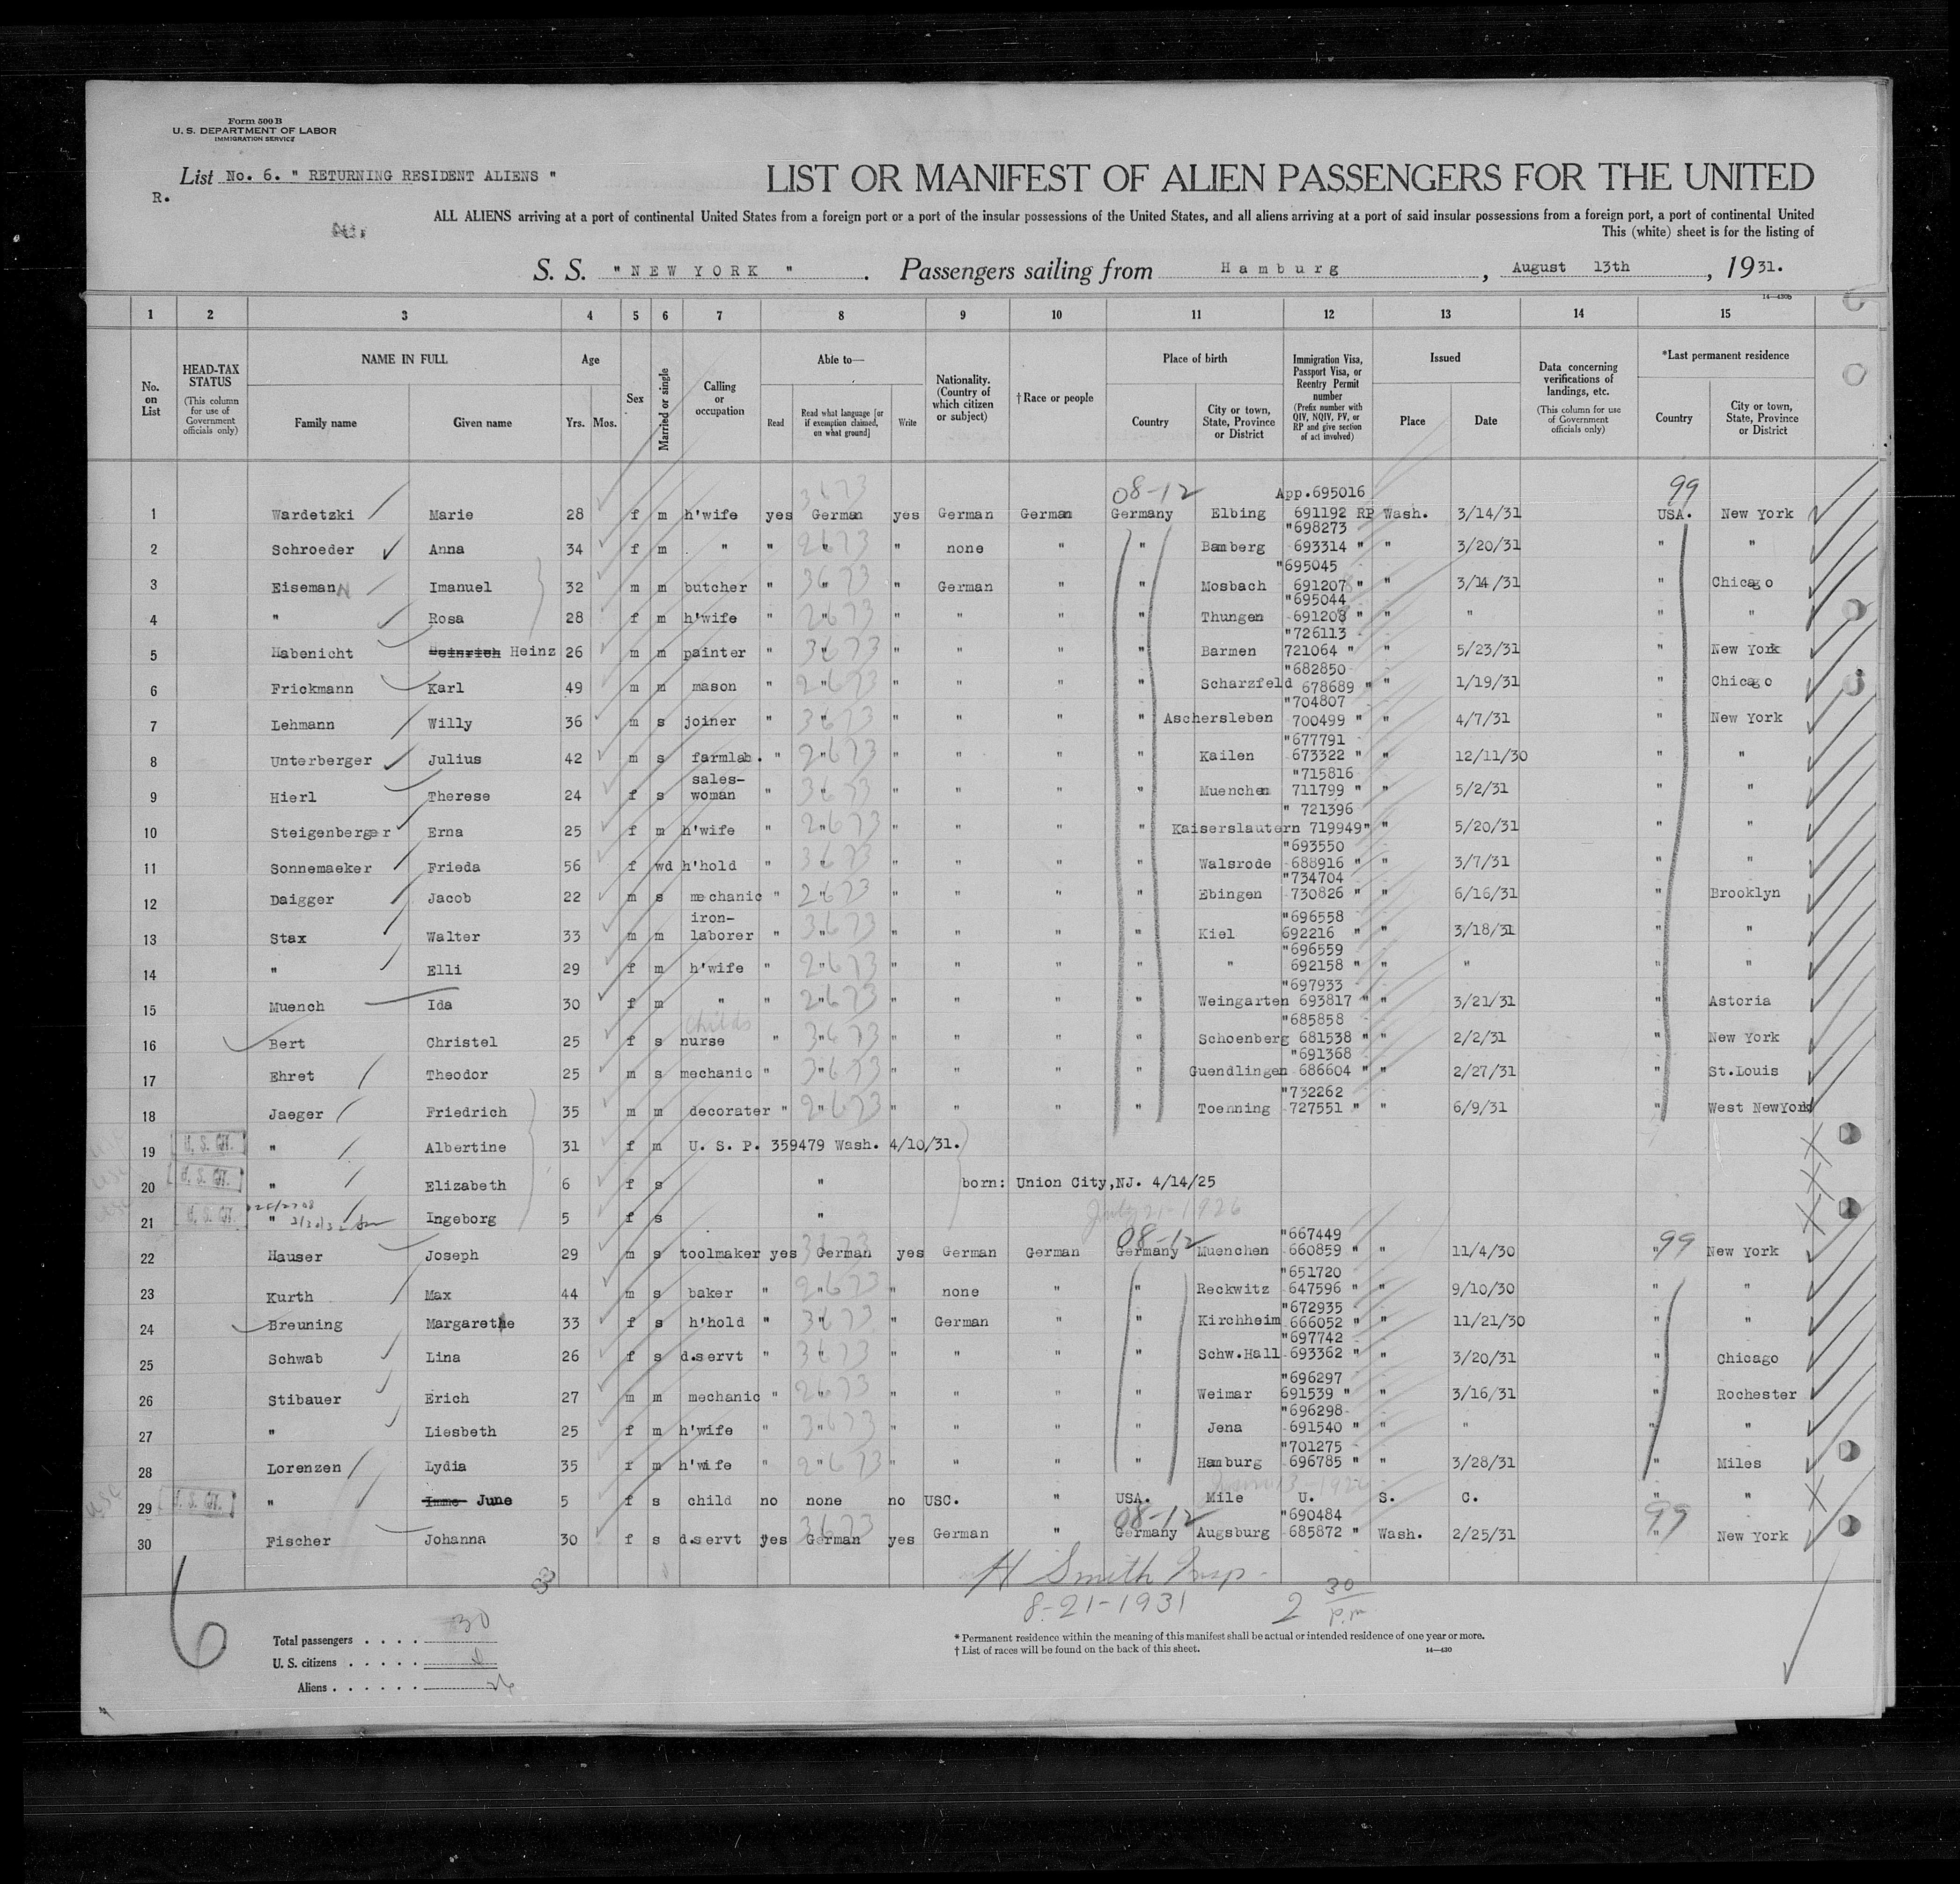 Form 500 B
U. S. DEPARTMENT OF LABOR
IMMIGRATION SERVICE
List No. 6. " RETURNING RESIDENT ALIENS "
R.
LIST OR MANIFEST OF ALIEN PASSENGERS FOR THE UNITED
ALL ALIENS arriving at a port of continental United States from a foreign port or a port of the insular possessions of the United States, and all aliens arriving at a port of said insular possessions from a foreign port, a port of continental United
This (white) sheet is for the listing of
S. S. " NEW YORK " . Passengers sailing from Hamburg , August 13th , 1931.
14—430b
1 2 3 4 5 6 7 8 9 10 11 12 13 14 15
No. on List
HEAD-TAX STATUS (This column for use of Government officials only)
NAME IN FULL Family name Given name
Age Yrs. Mos.
Sex
Married or single
Calling or occupation
Able to— Read Read what language [or if exemption claimed, on what ground] Write
Nationality. (Country of which citizen or subject)
†Race or people
Place of birth Country City or town, State, Province or District
Immigration Visa, Passport Visa, or Reentry Permit number (Prefix number with QIV, NQIV, PV, or RP and give section of act involved)
Issued Place Date
Data concerning verifications of landings, etc. (This column for use of Government officials only)
*Last permanent residence Country City or town, State, Province or District
3673 08-12 App.695016 99
1 Wardetzki Marie 28 f m h'wife yes German yes German German Germany Elbing 691192 RP Wash. 3/14/31 USA. New York
"698273
2 Schroeder Anna 34 f m " " " " none " " Bamberg 693314 " " 3/20/31 " "
"695045
3 EisemanN Imanuel 32 m m butcher " " " German " " Mosbach 691207 " " 3/14/31 " Chicago
"695044
4 " Rosa 28 f m h'wife " " " " " " Thungen 691208 " " " " "
"726113
5 Habenicht Heinrich Heinz 26 m m painter " " " " " " Barmen 721064 " " 5/23/31 " New York
"682850
6 Frickmann Karl 49 m m mason " " " " " " Scharzfeld 678689 " " 1/19/31 " Chicago
"704807
7 Lehmann Willy 36 m s joiner " " " " " " Aschersleben 700499 " " 4/7/31 " New York
"677791
8 Unterberger Julius 42 m s farmlab. " " " " " " Kailen 673322 " " 12/11/30 " "
sales- "715816
9 Hierl Therese 24 f s woman " " " " " " Muenchen 711799 " " 5/2/31 " "
" 721396
10 Steigenberger Erna 25 f m h'wife " " " " " " Kaiserslautern 719949" " 5/20/31 " "
"693550
11 Sonnemaeker Frieda 56 f wd h'hold " " " " " " Walsrode 688916 " " 3/7/31 " "
"734704
12 Daigger Jacob 22 m s mechanic " " " " " " Ebingen 730826 " " 6/16/31 " Brooklyn
iron- "696558
13 Stax Walter 33 m m laborer " " " " " " Kiel 692216 " " 3/18/31 " "
"696559
14 " Elli 29 f m h'wife " " " " " " " 692158 " " " " "
"697933
15 Muench Ida 30 f m " " " " " " " Weingarten 693817 " " 3/21/31 " Astoria
Childs "685858
16 Bert Christel 25 f s nurse " " " " " " Schoenberg 681538 " " 2/2/31 " New York
"691368
17 Ehret Theodor 25 m s mechanic " " " " " " Guendlingen 686604 " " 2/27/31 " St.Louis
"732262
18 Jaeger Friedrich 35 m m decorater " " " " " " Toenning 727551 " " 6/9/31 " West NewYork
19 U. S. CIT. " Albertine 31 f m U. S. P. 359479 Wash. 4/10/31.
20 U. S. CIT. " Elizabeth 6 f s " born: Union City,NJ. 4/14/25
21 U. S. CIT. " Ingeborg 5 f s " July 21-1926
08-12 "667449
22 Hauser Joseph 29 m s toolmaker yes German yes German German Germany Muenchen 660859 " " 11/4/30 " 99 New York
"651720
23 Kurth Max 44 m s baker " " " none " " Reckwitz 647596 " " 9/10/30 " "
"672935
24 Breuning Margarethe 33 f s h'hold " " " German " " Kirchheim 666052 " " 11/21/30 " "
"697742
25 Schwab Lina 26 f s d.servt " " " " " " Schw.Hall 693362 " " 3/20/31 " Chicago
"696297
26 Stibauer Erich 27 m m mechanic " " " " " " Weimar 691539 " " 3/16/31 " Rochester
"696298
27 " Liesbeth 25 f m h'wife " " " " " " Jena 691540 " " " " "
"701275
28 Lorenzen Lydia 35 f m h'wife " " " " " " Hamburg 696785 " " 3/28/31 " Miles
29 U. S. CIT. " Imme June 5 f s child no none no USC. " USA. Mile U. S. C. " "
08-12 "690484 99
30 Fischer Johanna 30 f s d.servt yes German yes German " Germany Augsburg 685872 " Wash. 2/25/31 " New York
H Smith Insp.
8-21-1931 2 30 p.m
6
Total passengers . . . . 30
U. S. citizens . . . . .
Aliens . . . . . . 26
* Permanent residence within the meaning of this manifest shall be actual or intended residence of one year or more.
† List of races will be found on the back of this sheet. 14—430